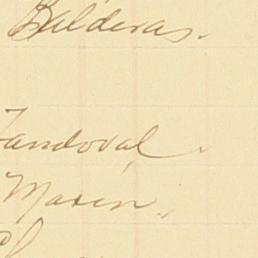 Balderas.
Sandoval.
Marin.